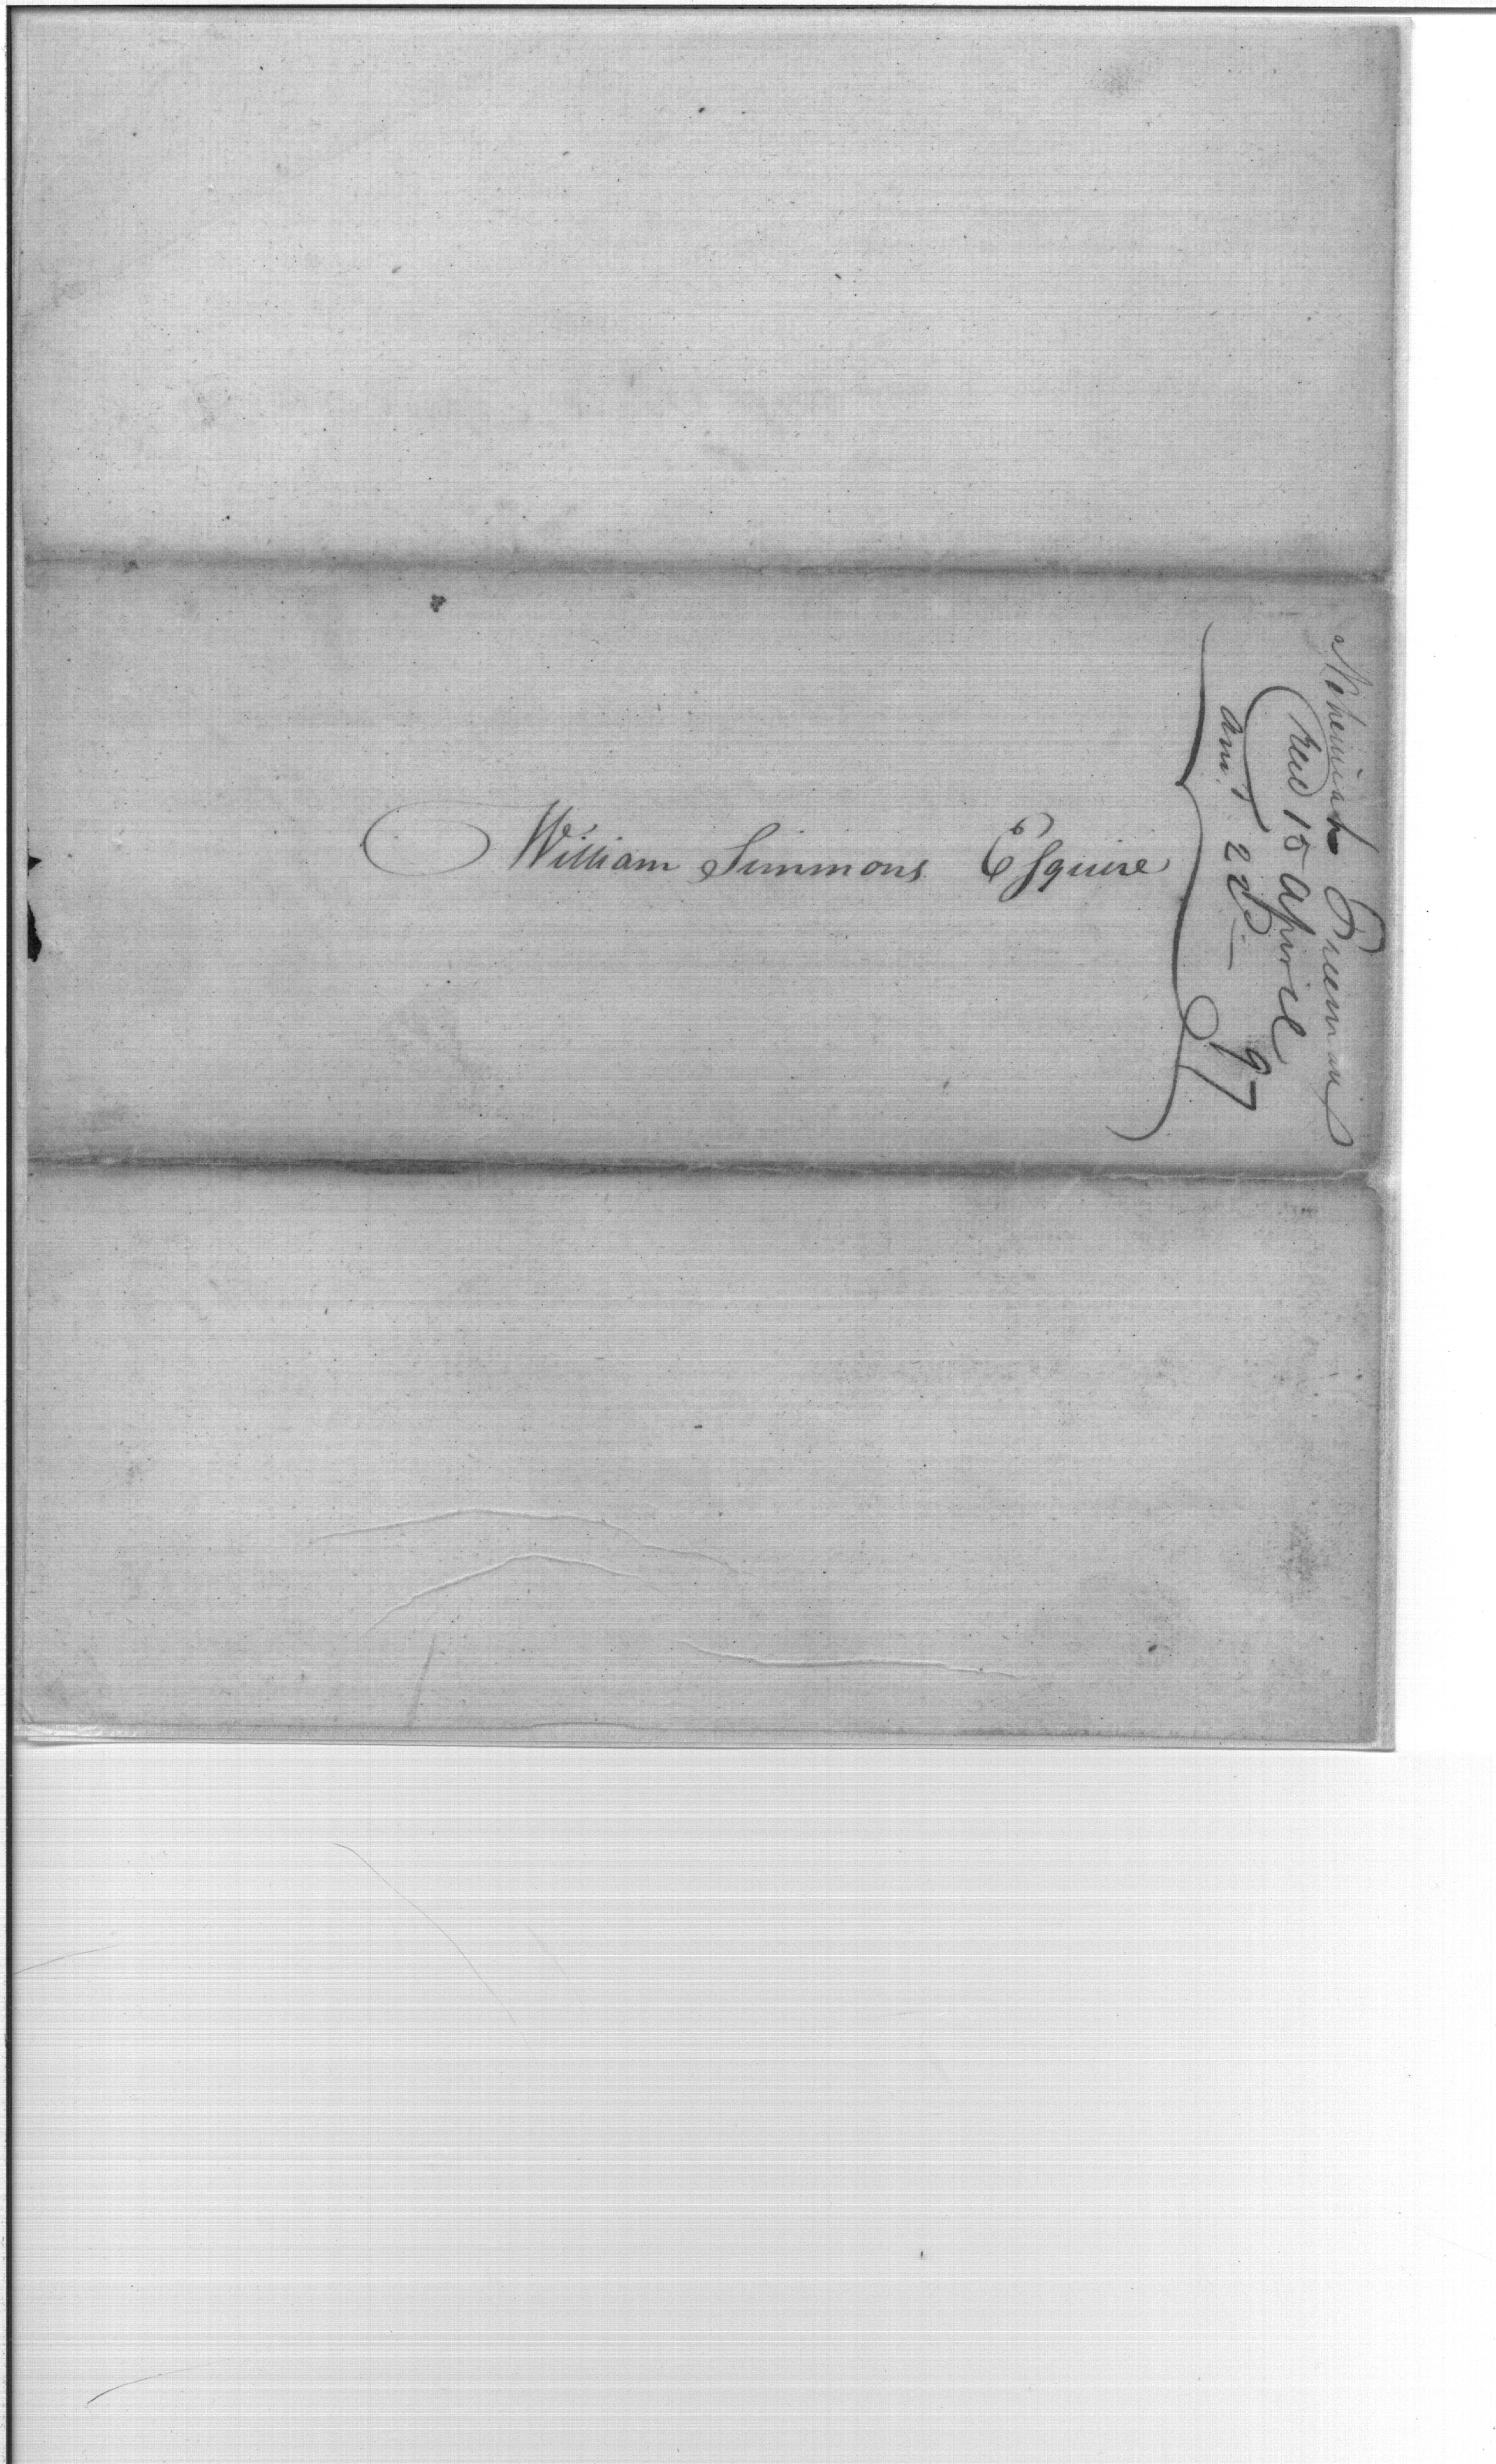 William Simmons Esquire
Nehemiah Freeman
Recd 15 April 97
Ansd 22d